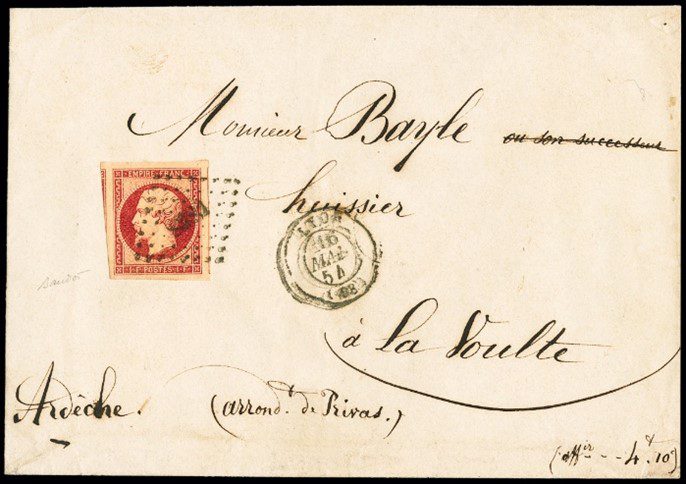 Monsieur Bayle ou son successeur
EMPIRE FRANC
huissier
LYON
16
MAI
54
(68)
1·F·POSTES·1·F
à la Voulte
Ardèche. (arrond.t de Privas.)
(affir - - 4t 10)